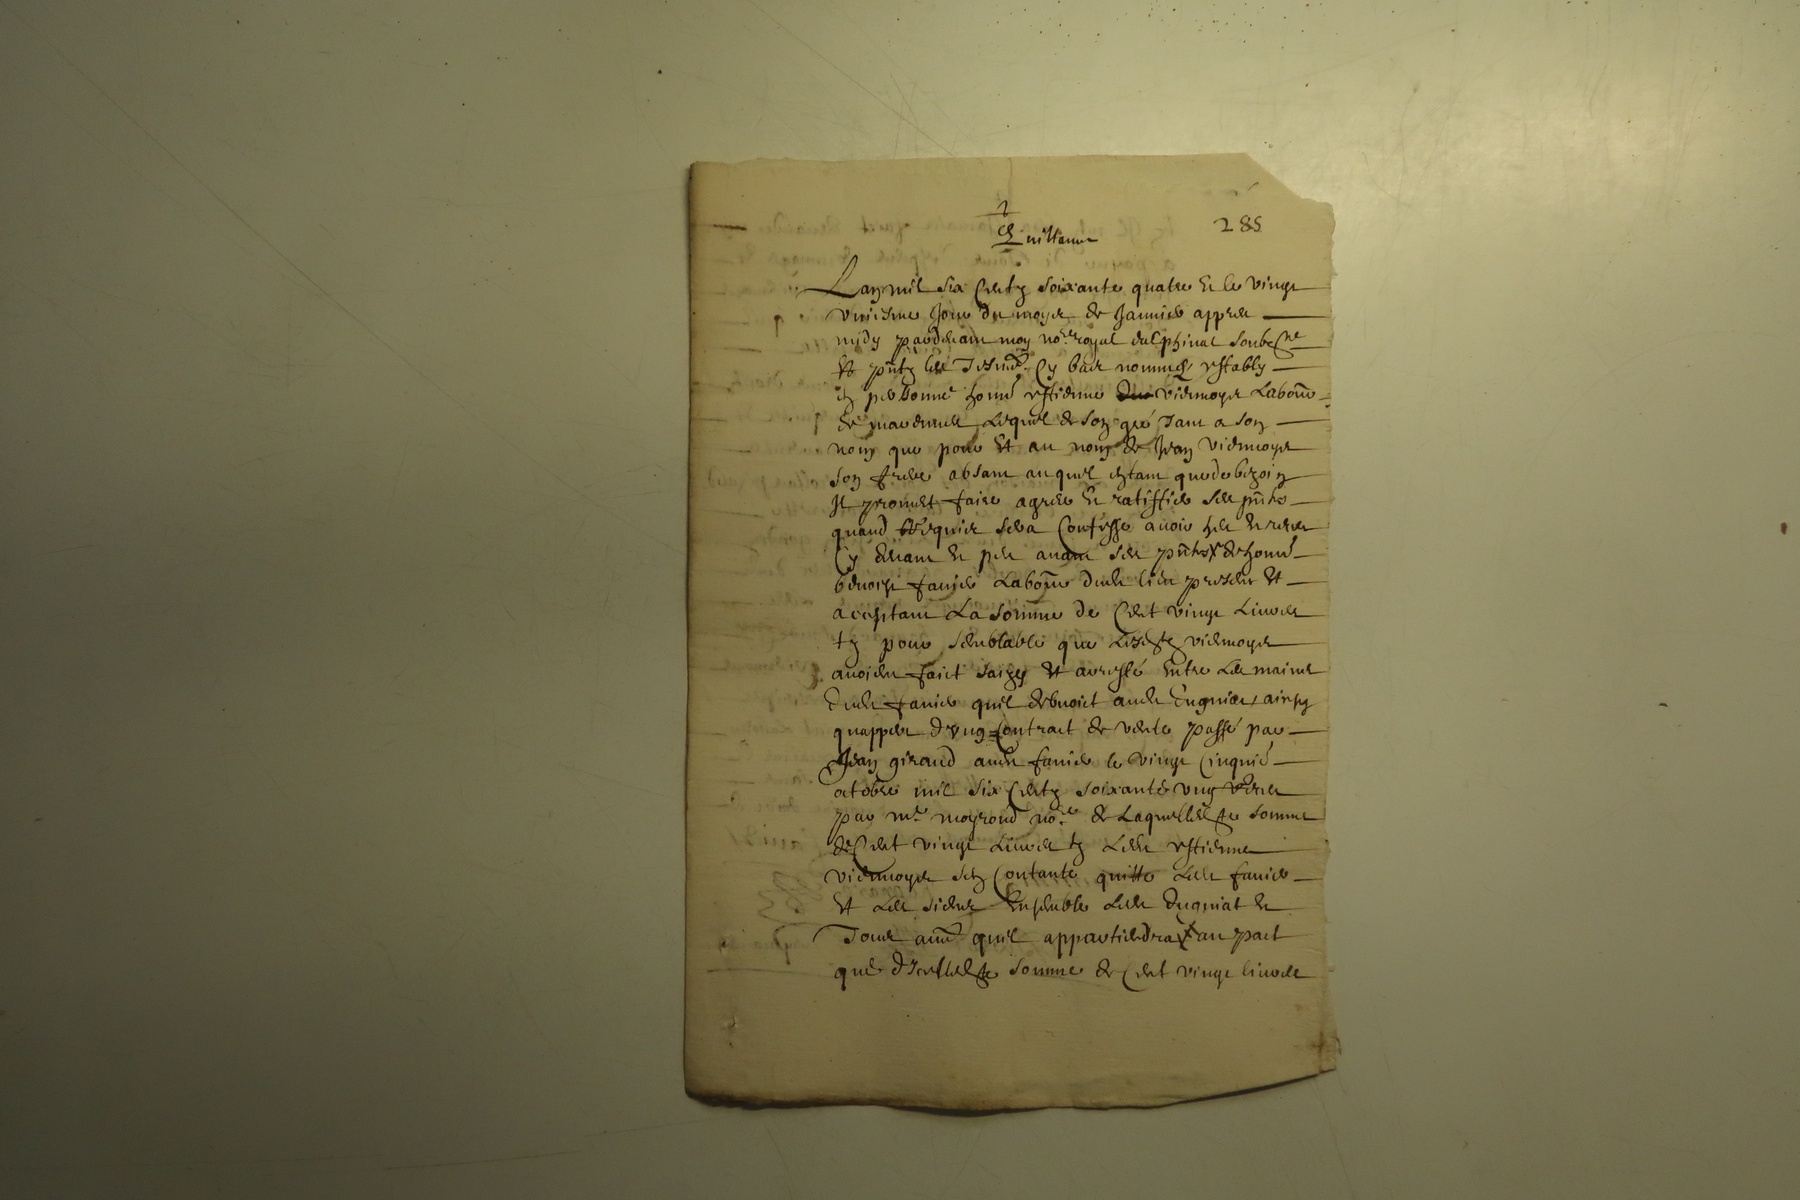 285
Quittance
Lan mil six centz soixante quatre et le vingt
uniesme jour du moys de janvier appres
midy pardevant moy nore royal dalphinal soubsne
et pntz les tesmns cy bas nommes estably
en personne honn estienne vielmoys labour
de lequel de son gré tant a son
nom que pour et au nom de jean vielmoys
son frere absant auquel entant que de bezoin
il promet faire agreer et ratiffier ses pntes
quand requis sera confesse avoir heu et receu
cy devant et peu avant ses pntes de honn
benoist favier labour dudt lieu present et
aceptant la somme de cent vingt livres
tz pour semblable que vielmoys
avoient faict saizy et arresté entre les mains
dudt favier quil debvoict audt ainsy
quappert dung contract de vente passé par
jean giraud audt favier le vingt cinquie
octobre mil six centz soixante ung
par me nore de laquelle somme
de cent vingt livres tz ledt estienne
vielmoys sen contante quitte ledt favier
et les siens ensemble ledt et
tous aues quil appartiendra au pact
que somme de cent vingt livres